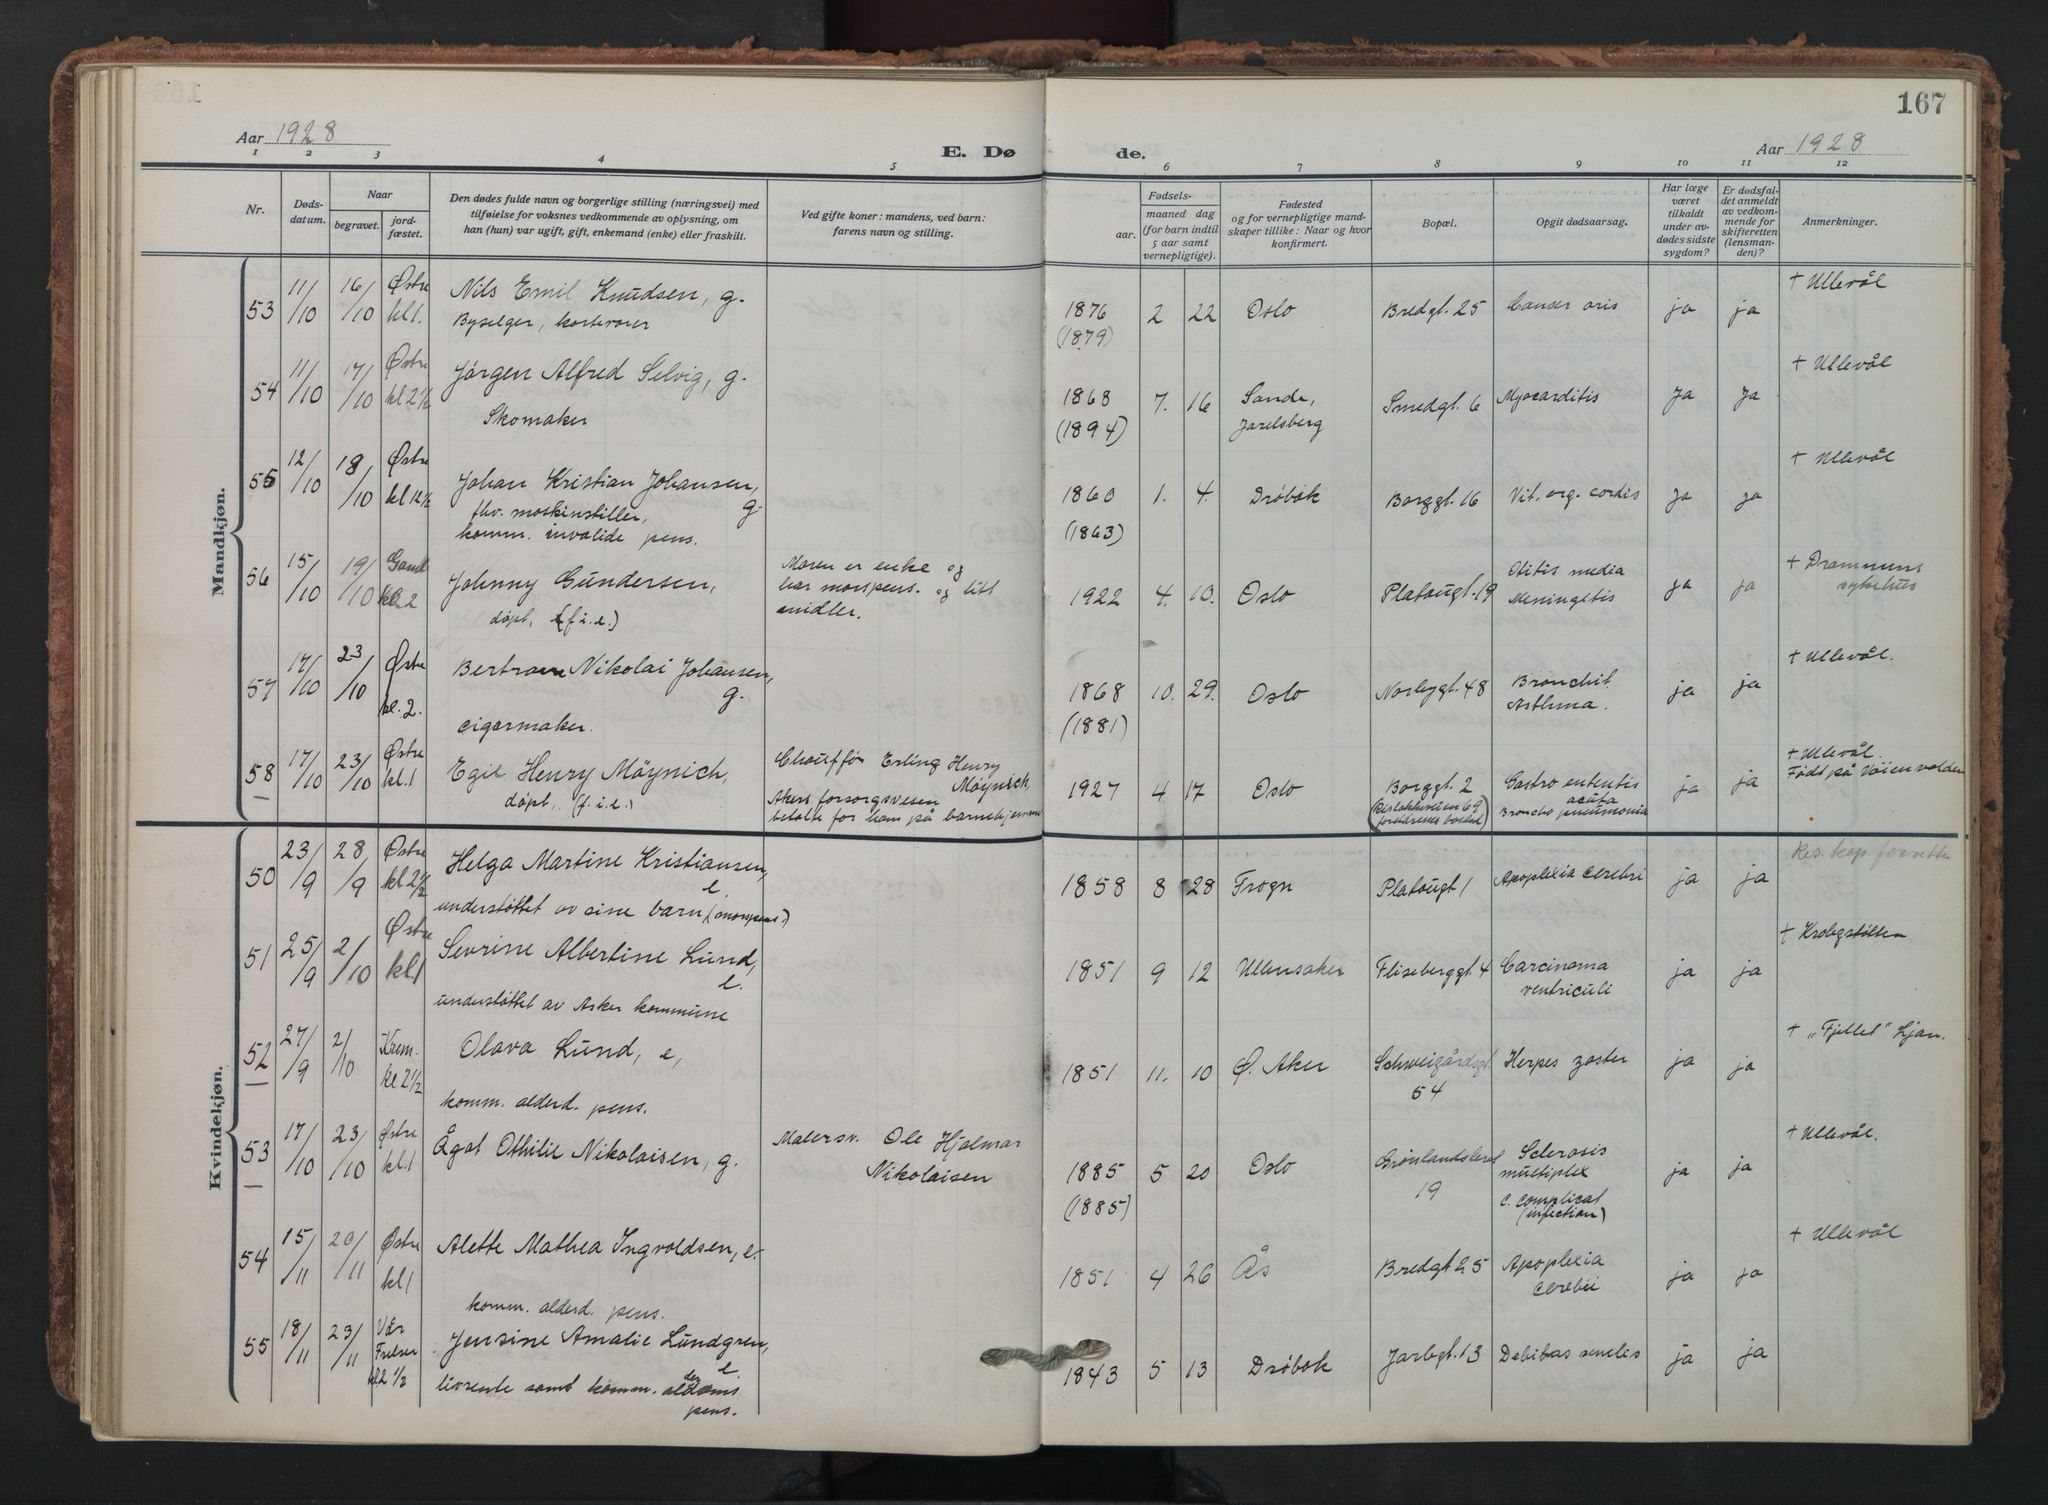 167
Aar 1928
E. Dø
de.
Aar 1928
1 2 3 4 5 6 7 8 9 10 11 12
Nr.
Døds-
datum.
Naar
begravet.
jord-
fæstet.
Den dødes fulde navn og borgerlige stilling (næringsvei) med
tilføielse for voksnes vedkommende av oplysning, om
han (hun) var ugift, gift, enkemand (enke) eller fraskilt.
Ved gifte koner: mandens, ved barn:
farens navn og stilling.
Fødsels-
aar.
maaned dag
(for barn indtil
5 aar samt
vernepligtige).
Fødested
og for vernepligtige mand-
skaper tillike: Naar og hvor
konfirmert.
Bopæl.
Opgit dødsaarsag.
Har læge
været
tilkaldt
under av-
dødes sidste
sygdom?
Er dødsfal-
det anmeldt
av vedkom-
mende for
skifteretten
(lensman-
den)?
Anmerkninger.
Mandkjøn.
53 11/10 16/10 Østre kl 1. Nils Emil Knudsen, g. 1876 2 22 Oslo Bredgt. 25 Cancer oris ja ja + Ullevål
Byselger,
(1879)
54 11/10 17/10 Østre kl 2 1/2 Jørgen Alfred Selvig, g. 1868 7. 16 Sande, Smedgt. 6 Myocarditis Ja Ja + Ullevål
Skomaker (1894) Jarelsberg
55 12/10 18/10 Østre kl 12 1/2 Johan Kristian Johansen, g. 1860 1. 4. Drøbak Borggt. 16 Vit. org. cordis ja ja + Ullevål
fhv. maskinstiller, (1863)
komm. invalide pens.
56 15/10 19/10 kl. 2 Johnny Gundersen, Moren er enke og 1922 4. 10. Oslo Platougt. 19 Otitis media ja ja + Drammens
døpt, (f. i. e.) har morspens. og litt Meningitis sykehus
midler.
57 17/10 23/10 Østre kl. 2. Bertram Nikolai Johansen, g. 1868 10. 29. Oslo Norbygt. 48 Bronchit. ja ja + Ullevål.
cigarmaker. (1881) Asthma.
58 17/10 23/10 Østre kl. 1 Egil Henry Møynich, Chauffør Erling Henry Møynich, 1927 4 17 Oslo Borggt. 2 Gastro ententis ja ja + Ullevål.
døpt, (f. i. e.) Akers forsorgsvesen acuta Født på Vøienvolden
betalte for ham på barnehjemme foreldrenes bosted) Broncho pneumonia
Kvindekjøn.
50 23/9 28/9 Østre kl 2 1/2 Helga Martine Kristiansen, e. 1858 8 28 Frogn Platougt 1 Apoplexia cerebri ja ja Res. kap forretter
understøttet av sine barn (morspens.)
51 25/9 2/10 Østre kl 1 Sevrine Albertine Lund, e. 1851 9 12 Ullensaker Fliseberggt. 4 Carcinoma ja ja + Krohgstøtten
understøttet av Asker kommune ventriculi
52 27/9 2/10 Krem. kl 2 1/2 Olava Lund, e, 1851 11. 10 Ø. Aker Schweigårdsgt. Herpes zoster ja ja + „Fjellet" Ljan.
komm. alderd. pens. 54
53 17/10 23/10 Østre kl. 1 Ågot Othilie Nikolaisen, g. Malersv. Ole Hjalmar 1885 5 20 Oslo Grønlandsleret Sclerosis ja ja + Ullevål.
Nikolaisen (1885) 19 multiplex
c. complicat
(infection)
54 15/11 20/11 Østre kl 1 Alette Mathea Ingvoldsen, e. 1851 4 26 Ås Bredgt 25 Apoplexia ja ja + Ullevål
komm. alderd. pens. cerebri
55 18/11 23/11 Vår Frelser kl. 2 1/2 Jensine Amalie Lundgren, e. 1843 5 13 Drøbak Jarbgt. 13 Debilitas senilis ja ja
livrente samt komm. alderdoms
pens.